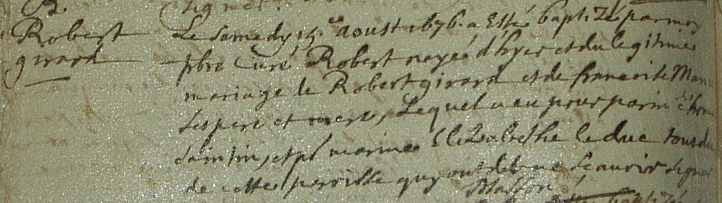 B.
Robert
girard
Le samedy 15 aoust 1676 a esté baptizé par moy
pbre Curé Robert nayé d'hyer et du legitime
mariage de Robert girard et de francoise
ses pere et mere, Lequel a eu pour parin
saintin, et pr marine Elizabethe le duc tous deux
de cette parroisse quy ont declare sçavoir signer
Masson
baptizé